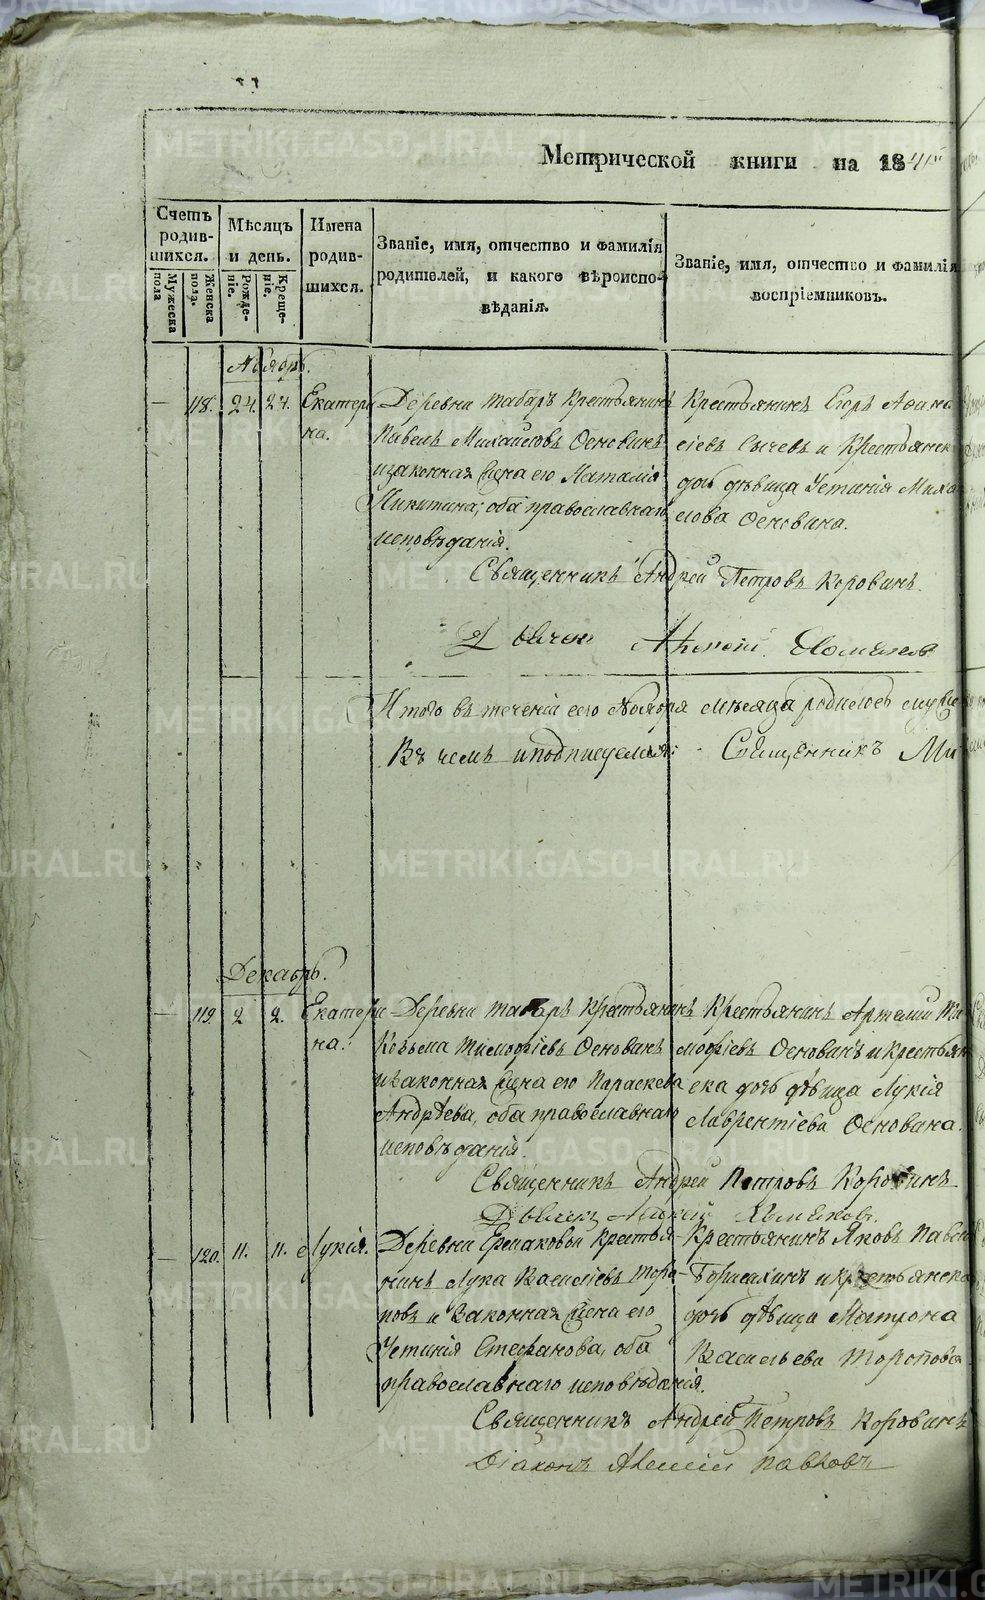 Метрической книги на 184
Счетъ родив-шихся.
Мужеска пола
Женска пола.
Мѣсяцъ и день.
Рожде-ніе.
Креще-ніе.
Имена родив-шихся.
Званіе, имя, отчество и фамилія
родителей, и какого вѣроиспо-
вѣданія.
Званіе, имя, отчество и фамилія
воспріемниковъ.
Ноябрь.
118. 24. 24. Екатери
на.
Деревни Табаръ Крестьянинъ
Павелъ Михайловъ Основинъ
и законная жена его Наталія
Никитина, оба православнаго
исповѣданія.
Крестьянинъ Егоръ Афана
сіевъ Сычевъ и Крестьянск
дочь дѣвица Устинія Миха
елова Основина.
Священникъ Андрей Петровъ Коровинъ.
Итого въ теченіи сего Ноября мѣсяца родилось муже
Въ чемъ и подписуемся: Священникъ Ми
Декабрь.
119. 2 2. Екатери
на.
Деревни Табаръ Крестьянинъ
Козьма Тимофѣевъ Основинъ
и законная жена его Параскева
Андрѣева, оба православнаго
исповѣданія.
Крестьянинъ Артемій Ти
мофѣевъ Основинъ и крестьян
ска дочь дѣвица Лукія
Лаврентіева Основина.
Священникъ Андрей Петровъ Коровинъ
120. 11. 11. Лукія.
Деревни Ермаковой Крестья-
нинъ Лука Васильевъ Торо-
повъ и Законная жена его
Устинія Стефанова, оба
православнаго исповѣданія.
Крестьянинъ Яковъ Павло
и крестьянска
дочь дѣвица Матрона
Васильева Торопова.
Священникъ Андрей Петровъ Коровинъ
Діаконъ Алексій
METRIKI.GASO-URAL.RU